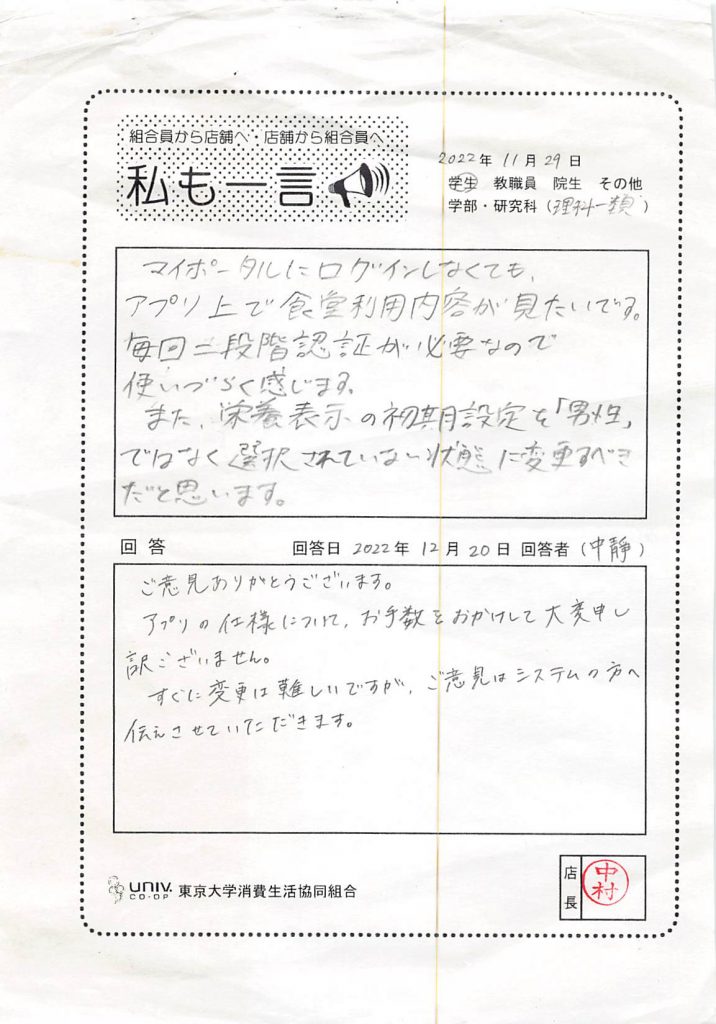 組合員から店舗へ・店舗から組合員へ
私も一言
2022年 11月 29日
学生 教職員 院生 その他
学部・研究科(理科一類)
マイポータルにログインしなくても、
アプリ上で食堂利用内容が見たいです。
毎回二段階認証が必要なので
使いづらく感じます。
また、栄養表示の初期設定を「男性」
ではなく選択されていない状態に変更すべき
だと思います。
回答 回答日 2022年 12月 20日 回答者(中静)
ご意見ありがとうございます。
アプリの仕様について、お手数をおかけして大変申し
訳ございません。
すぐに変更は難しいですが、ご意見はシステムの方へ
伝えさせていただきます。
UNIV.
CO-OP
東京大学消費生活協同組合
店長
中村